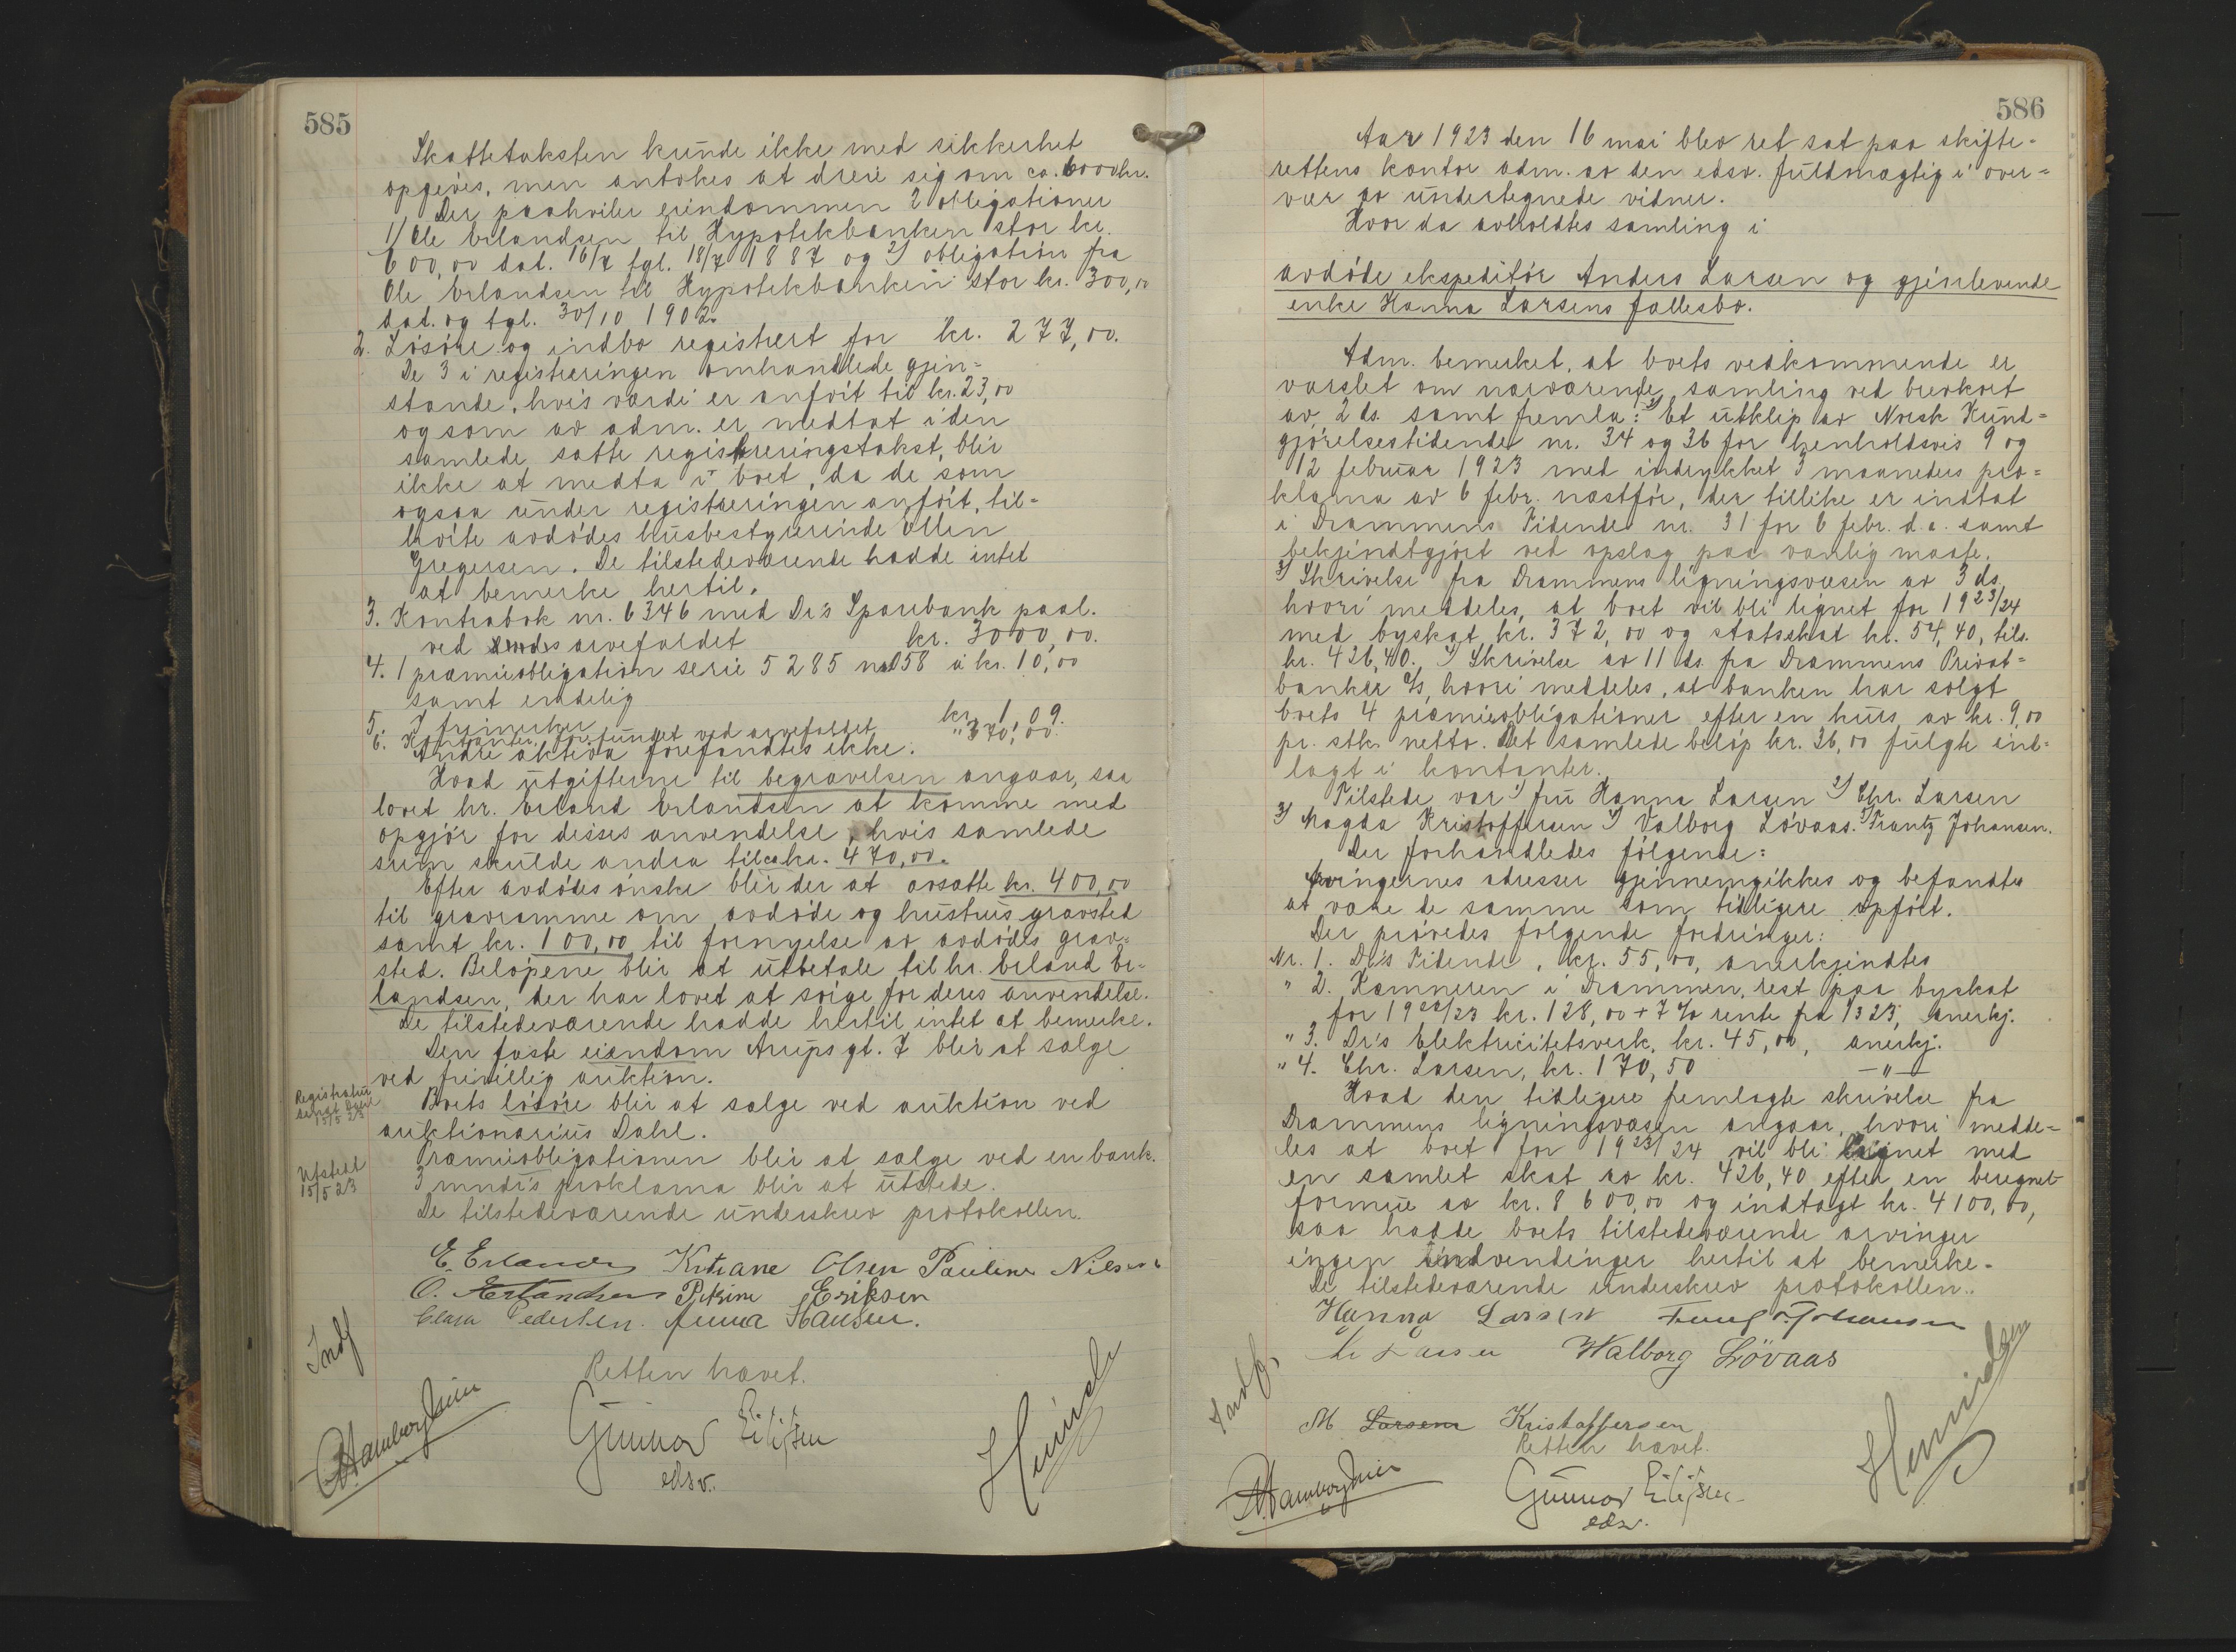 585
Skattetaksten kunde ikke med sikkerhet
opgives, men antokes at dreie sig om ca. 6000 kr.
Der paahviler eiendommen 2 obligationer
1/ Ole Erlandsen til Hypotekbanken stor kr.
600,00 dat. 16/7 tgl. 18/7 1887 og 2) obligation fra
Ole Erlandsen til Hypotekbanken stor kr. 300,00
dat. og tgl. 30/10 1902.
2. Løsøre og indbo registrert for kr. 277,00.
De 3 i registreringen omhandlede gjen-
stande, hvis værdi er anført til kr. 23,00
og som av adm. er medtat i den
samlede satte registreringstakst, blir
ikke at medta i boet, da de som
ogsaa under registreringen anført, til-
hørte avdødes husbestyrerinde Ellen
Gregersen. De tilstedeværende hadde intet
at bemerke hertil.
3. Kontrabok nr. 6346 med Dr's Sparebank paal.
ved arvefaldet kr. 3000,00.
4. 1 præmieobligation serie 5285 nr 058 à kr. 10,00
samt endelig
5. I frimerker kr. 1,09.
6. Kontanter forefundet ved arvefaldet " 370,00.
Andre aktiva forefandtes ikke.
Hvad utgifterne til begravelsen angaar, saa
lovet hr. Erland Erlandsen at komme med
opgjør for disses anvendelse, hvis samlede
sum skulde andra til ca kr. 470,00.
Efter avdødes ønske blir der at avsætte kr. 400,00
til gravramme om avdøde og hustrus gravsted
samt kr. 100,00 til fornyelse av avdødes grav-
sted. Beløpene blir at utbetale til hr. Erland Er-
landsen, der har lovet at sørge for deres anvendelse.
De tilstedeværende hadde hertil intet at bemerke.
Den faste eiendom Arups gt. 7 blir at sælge
ved frivillig auktion.
Registratur
sendt Dahl
15/5 23
Boets løsøre blir at sælge ved auktion ved
auktionarius Dahl.
Præmieobligationen blir at sælge ved en bank.
Utstedt
15/5 23
3 mndr's proklama blir at utstede.
De tilstedeværende underskrev protokollen.
E. Erlandsen Kitiane Olsen Pauline Nilsen
O. Erlandsen Petrine Eriksen
Clara Pedersen. Anna Hansen.
Indf
Retten hævet.
Gunnar Eilifsen
edsv.
586
Aar 1923 den 16 mai blev ret sat paa skifte-
rettens kontor adm. av den edsv. fuldmægtig i over-
vær av undertegnede vidner.
Hvor da avholdtes samling i
avdøde ekspeditør Anders Larsen og gjenlevende
enke Hanna Larsens fællesbo.
Adm. bemerket, at boets vedkommende er
varslet om nærværende samling ved brevkort
av 2 ds. samt fremla: 1) Et utklip av Norsk Kund-
gjørelsestidende nr. 34 og 36 for henholdsvis 9 og
12 februar 1923 med indrykket 3 maaneders pro-
klama av 6 febr. næstfør, der tillike er indtat
i Drammens Tidende nr. 31 for 6 febr. d.a. samt
bekjendtgjort ved opslag paa vanlig maate.
3) Skrivelse fra Drammens ligningsvæsen av 3 ds.
hvori meddeles, at boet vil bli lignet for 1923/24
med byskat kr. 372,00 og statsskat kr. 54,40, tils.
kr. 426,40. 4) Skrivelse av 11 ds. fra Drammens Privat-
banker A/S, hvori meddeles, at banken har solgt
boets 4 præmieobligationer efter en kurs av kr. 9,00
pr. stk. netto. Det samlede beløp kr. 36,00 fulgte ind-
lagt i kontanter.
Tilstede var 1) fru Hanna Larsen 2) Chr. Larsen
3) Magda Kristoffersen 4) Valborg Løvaas. 5) Frantz Johansen.
Der forhandledes følgende:
Arvingernes adresser gjennemgikkes og befandtes
at være de samme som tidligere opført.
Der prøvedes følgende fordringer:
Nr. 1. Dr's Tidende, kr. 55,00, anerkjendtes
" 2. Kæmneren i Drammen, rest paa byskat
for 1922/23 kr. 128,00 + 7 % rente fra 1/3 23, anerkj.
" 3. Dr's Elektricitetsverk, kr. 45,00, anerkj.
" 4. Chr. Larsen, kr. 170,50 — " —
Hvad den tidligere fremlagte skrivelse fra
Drammens ligningsvæsen angaar, hvori medde-
les at boet for 1923/24 vil bli lignet med
en samlet skat av kr. 426,40 efter en beregnet
formue av kr. 8600,00 og indtægt kr. 4100,00,
saa hadde boets tilstedeværende arvinger
ingen indvendinger hertil at bemerke.
De tilstedeværende underskrev protokollen.
Hanna Larsen Frantz Johansen
Larsen Walborg Lövaas
Indf.
M Larsen Kristoffersen
Retten hævet.
Gunnar Eilifsen
edsv.